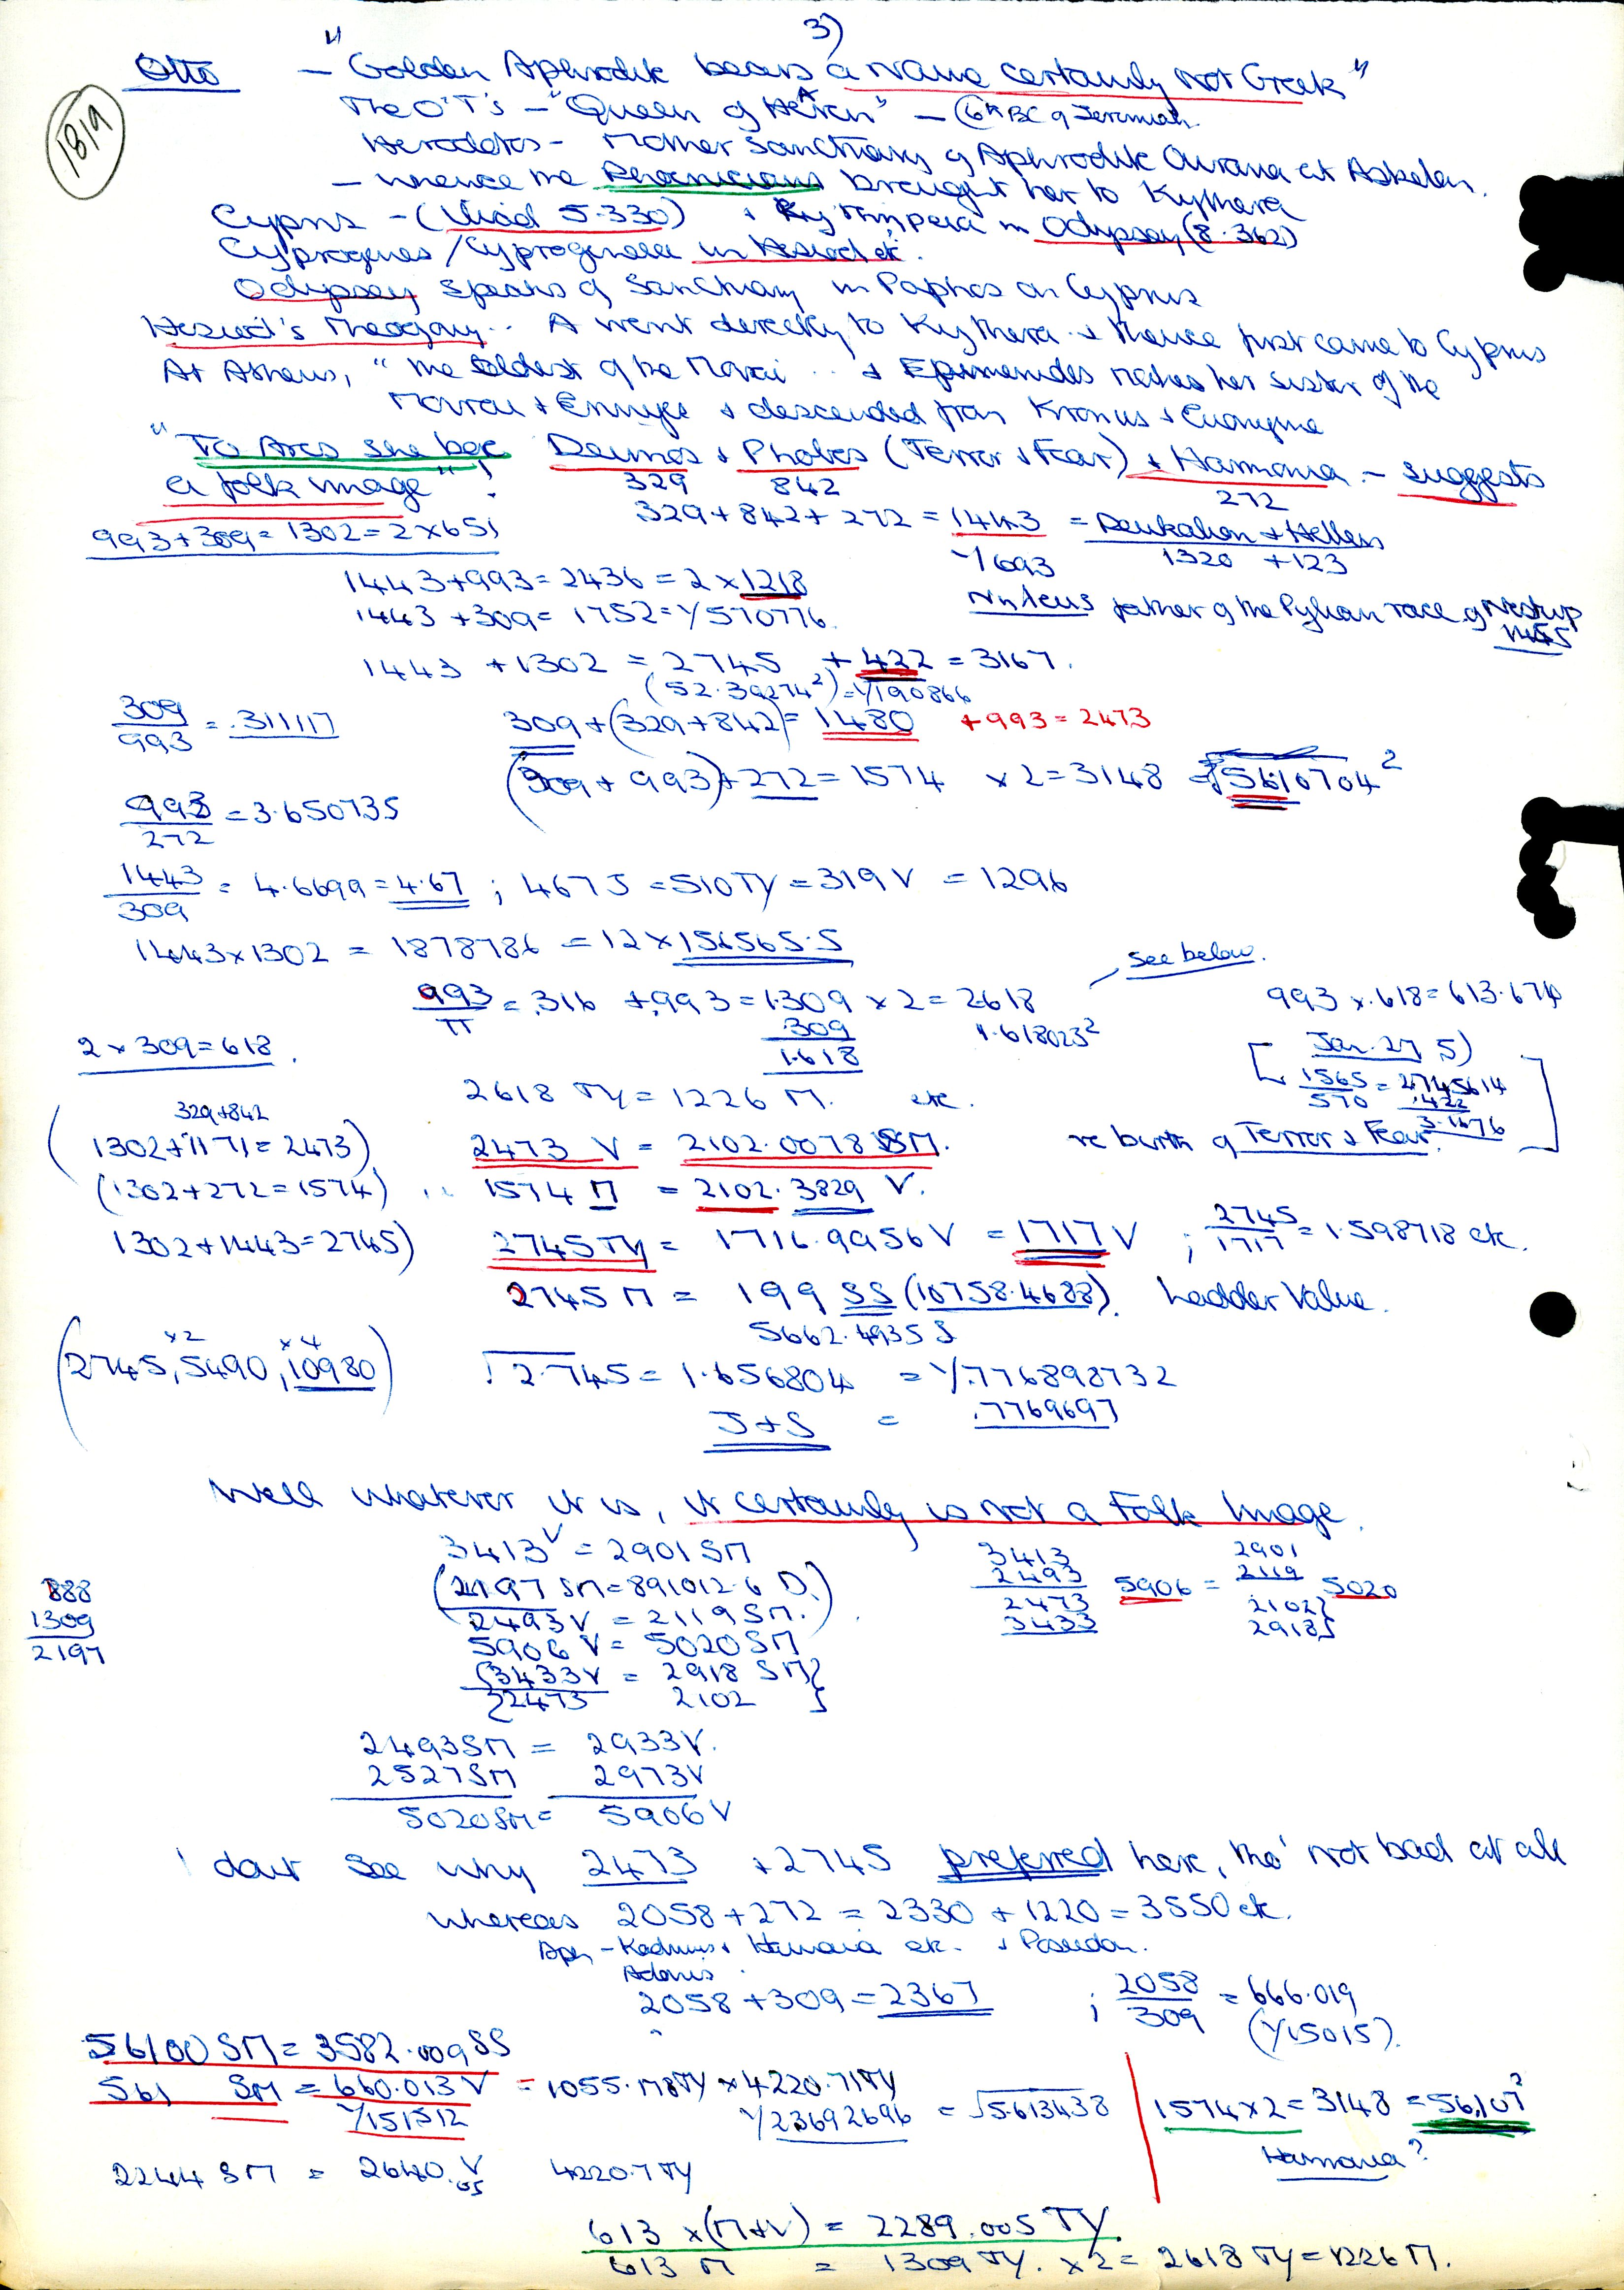 3)
1819
Otto — "Golden Aphrodite bears a name certainly not Greek"
The O'T's — "Queen of Heaven" — 6th BC of Jeremiah.
Herodotos - Mother Sanctuary of Aphrodite Ourania at Askalon.
— whence the Phoenicians brought her to Kythera
Cypris - (Iliad 5.330) + in Odyssey (8.362)
Cyprogenes / Cyprogeneia in Hesiod etc.
Odyssey speaks of Sanctuary in Paphos on Cyprus
Hesiod's Theogony.. A went directly to Kythera + thence first came to Cyprus
At Athens, "the oldest of the Moirai .. + Epimenides makes her sister of the
Moirai + Erinyes + descended from Kronus + Euonyme
"To Ares she bore Deimos + Phobos (Terror + Fear) + Harmonia - suggests
a folk image"!
329 842 272
993+309=1302=2×651
329+842+272=1443 = Deukalion + Hellen
1/693 1320 +123
1443+993=2436=2×1218
Neleus father of the Pylian race of Nestup
1443+309=1752=1/570776
1443+1302=2745+422=3167.
(52.39274²)=1/190866
309/993=.311117
309+(329+842)=1480 +993=2473
(309+993)+272=1574 ×2=3148 = 56.10704²
993/272=3.650735
1443/309=4.6699=4.67; 467J=510TY=319V=1296
1443×1302=1878786=12×156565.5
see below.
993/π=.316 +.993=1.309×2=2618
.309 1.618023²
1.618
993×.618=613.674
2×309=618.
[Jan. 27 5)
1565/570=2.745614
.422
3.1676]
2618 TY=1226 M. etc.
329+842
(1302+1171=2473) 2473 V = 2102.0078 SM.
re birth of Terror + Fear.
(1302+272=1574) 1574 M = 2102.3829 V.
1302+1443=2745) 2745TY = 1716.9956V = 1717 V ; 2745/1717=1.598718 etc.
2745 M = 199 SS (10758.4688). Ladder Value.
5662.4935 S
×2 ×4
(2745, 5490, 10980) √2.745=1.656804 = 1/.776898732
J+S = .7769697
Well whatever it is, it certainly is not a Folk Image.
3413V = 2901SM
(2197 SM=891012.6 D.)
2493V = 2119SM.
5906 V = 5020SM
{3433V = 2918 SM}
{2473 2102}
3413
2493
2473
3433
5906 =
2901
2119
2102}
2918}
5020
888
1309
2197
2493SM = 2933V.
2527SM 2973V
5020SM = 5906V
I don't see why 2473 + 2745 preferred here, tho' not bad at all
whereas 2058+272=2330+1220=3550 etc.
Aph - Kadmus + Harmonia etc. + Poseidon.
Adonis
2058+309=2367 ; 2058/309=666.019
(1/15015).
56100 SM=3582.009 SS
561 SM = 660.013 V = 1055.178TY ×4220.71TY
1/151512 1/23692696 = √5.613438
1574×2=3148=56.107²
Harmonia?
2244 SM = 2640.05 V 4220.7 TY
613×(M+V) = 2289.005 TY.
613 M = 1309 TY. ×2=2618 TY=1226M.